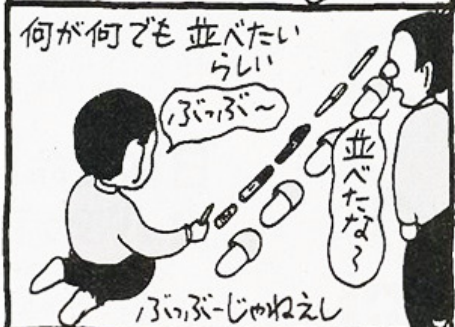 何が何でも 並べたい
らしい
ぶっぶ〜
並べたな〜
ぶっぶーじゃねえし